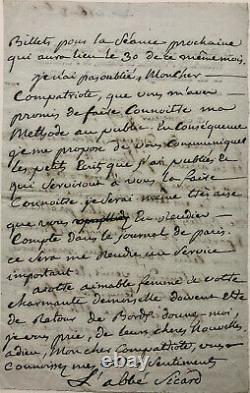 Billets pour la Séance prochaine
qui aura lieu le 30 de ce même mois.
je n'ai pas oublié, Mon cher
Compatriote, que vous m'avez
promis de faire Connoître ma
Methode au public. En Conséquence
je me propose de vous Communiquer
les petits Ecrits que j'ai publiés et
qui serviront à vous la faire
Connoître. je serai même très aise
que vous en rendiez
Compte dans le journal de paris.
ce sera me rendre un service
important.
aimable femme et votre
charmante demoiselle doivent etre
de retour de Bord. donnez-moi,
je vous prie, de leurs cheres Nouvelles.
adieu, Mon cher Compatriote, vous
connoissez mes sentiments
L'abbé Sicard